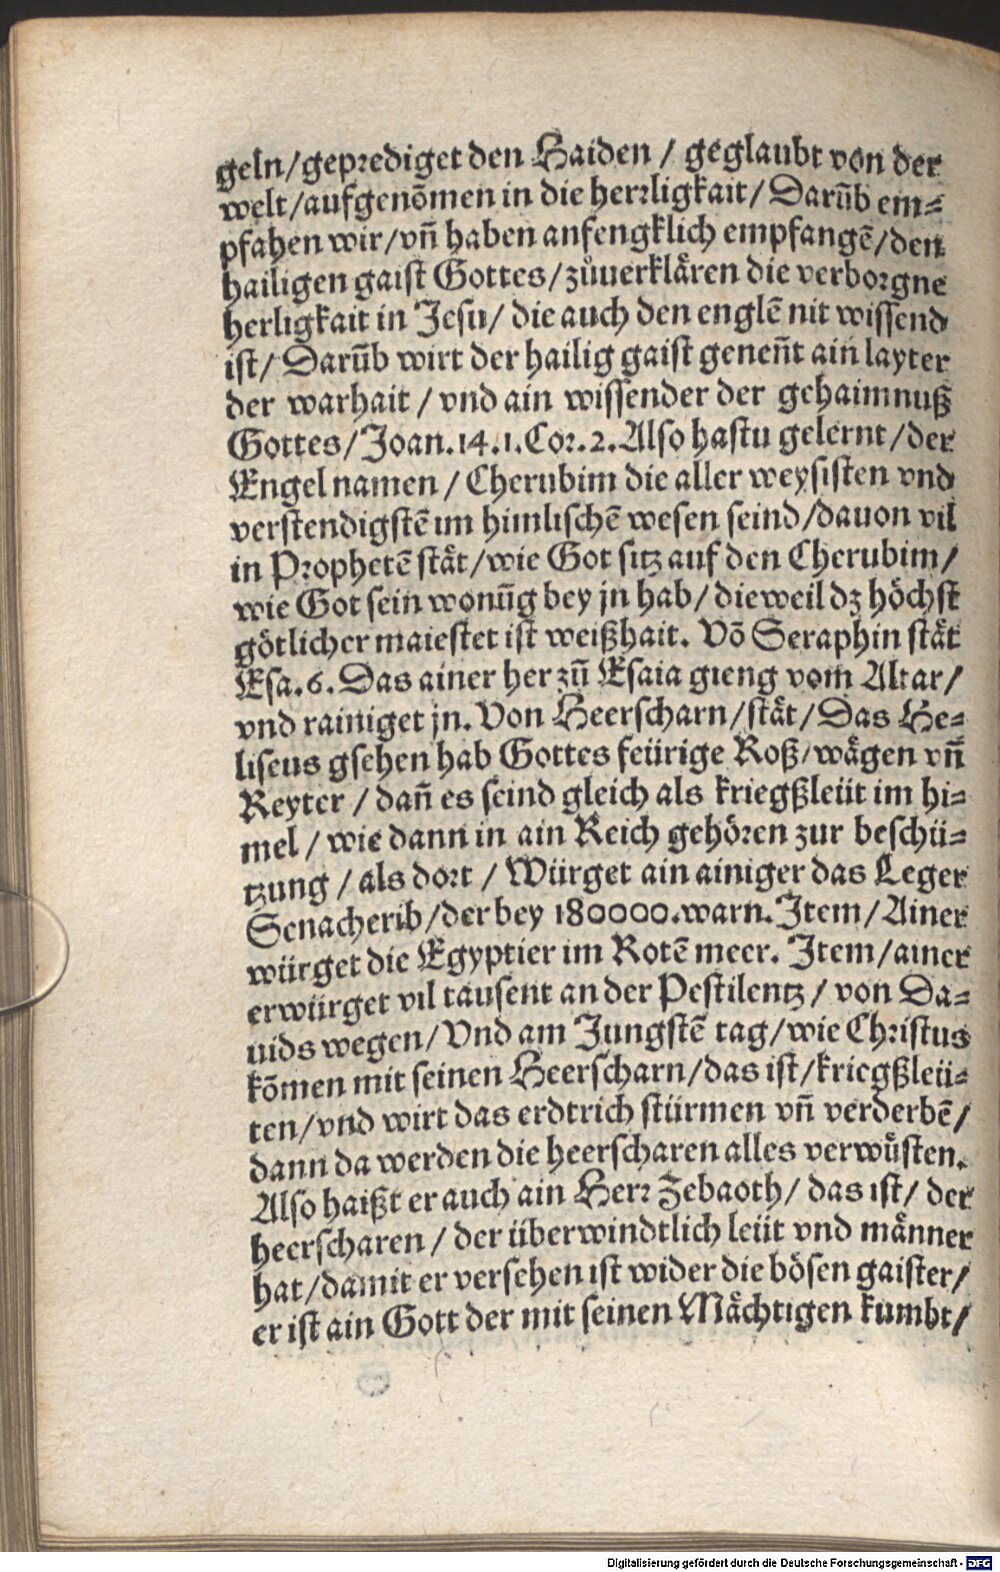 geln/geprediget den Haiden / geglaubt von der
welt/aufgenōmen in die herrligkait/ Darūb em⸗
pfahen wir/vn̄ haben anfengklich empfangē/den
hailigen gaist Gottes/zůuerklären die verborgne
herligkait in Jesu/ die auch den englē nit wissend
ist/ Darūb wirt der hailig gaist genen̄t ain layter
der warhait / vnd ain wissender der gehaimnuß
Gottes/Joan.14.1.Cor.2.Also hastu gelernt/der
Engel namen / Cherubim die aller weysisten vnd
verstendigstē im himlischē wesen seind/dauon vil
in Prophetē stät/wie Got sitz auf den Cherubim/
wie Got sein wonūg bey jn hab/ dieweil dz höchst
götlicher maiestet ist weißhait. Vō Seraphin stät
Esa.6.Das ainer her zū Esaia gieng vom Altar/
vnd rainiget jn. Von Heerscharn/stät/Das He⸗
liseus gsehen hab Gottes feürige Roß/wägen vn̄
Reyter / dan̄ es seind gleich als kriegßleüt im hi⸗
mel / wie dann in ain Reich gehören zur beschü⸗
tzung / als dort / Würget ain ainiger das Leger
Senacherib/der bey 180000.warn.Item/Ainer
würget die Egyptier im Rotē meer. Item/ainer
erwürget vil tausent an der Pestilentz / von Da⸗
uids wegen/Vnd am Jungstē tag/wie Christus
kōmen mit seinen Heerscharn/das ist/kriegßleü⸗
ten/vnd wirt das erdtrich stürmen vn̄ verderbē/
dann da werden die heerscharen alles verwüsten.
Also haißt er auch ain Herr Zebaoth/ das ist/ der
heerscharen / der überwindtlich leüt vnd männer
hat/damit er versehen ist wider die bösen gaister/
er ist ain Gott der mit seinen Mächtigen kumbt/
Digitalisierung gefördert durch die Deutsche Forschungsgemeinschaft - DFG